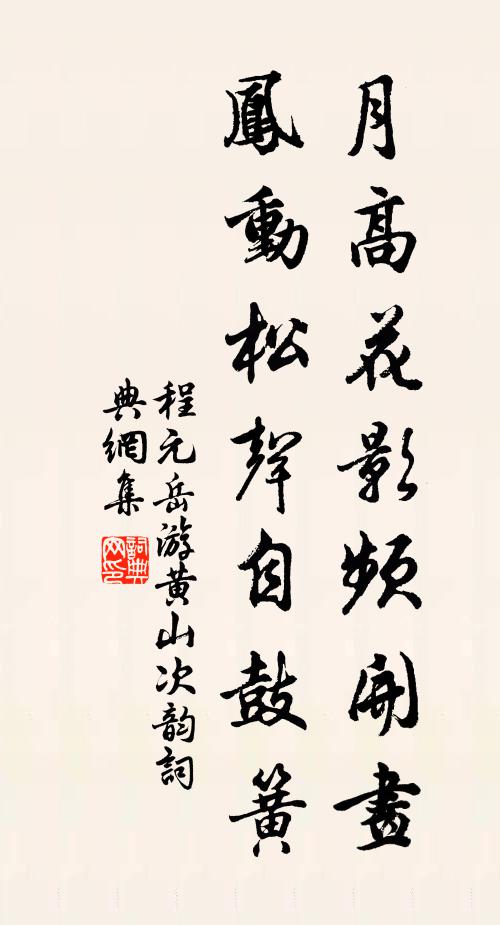 月高花影頻開畫
鳳動松聲自鼓簧
程元岳游黄山次韵詞
典網集
詞典
网印